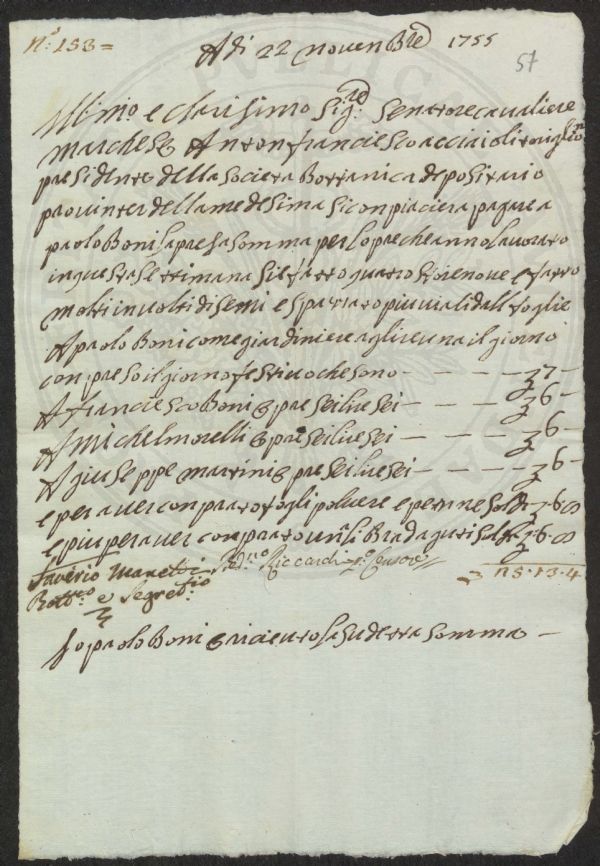 n.° 133 =
A di 22 novenbre 1755
57
Ill.mo e clarisimo Sig.re Senatore cavaliere
marchese Antonfranciesco acciaioli
presidente della Società Bottanica depositario
paolo Boni la presa somma per l opre che anno lavorato
in questa settimana si è fatto quatro stoie nove e fatto
molti involti di semi e spazzato più viali dall foglie
A paolo Boni come giardiniere a glire una il giorno
con preso il giorno festivo che sono - - - - - 7 -
A Franciesco Boni 6 pre sei lire sei - - - - 6 -
A Michel morelli 6 pre sei lire sei - - - - 6 -
A giuseppe martini 6 pre sei lire sei - - - - 6 -
e per aver conprato fogli polvere e penne soldi - 6 - 8
e più per aver conprato 6 - 8
Saverio Manetti
Riccardi Censore
Segret.rio
5 - 13 - 4
Io paolo Boni ò riceuto la sudetta somma -